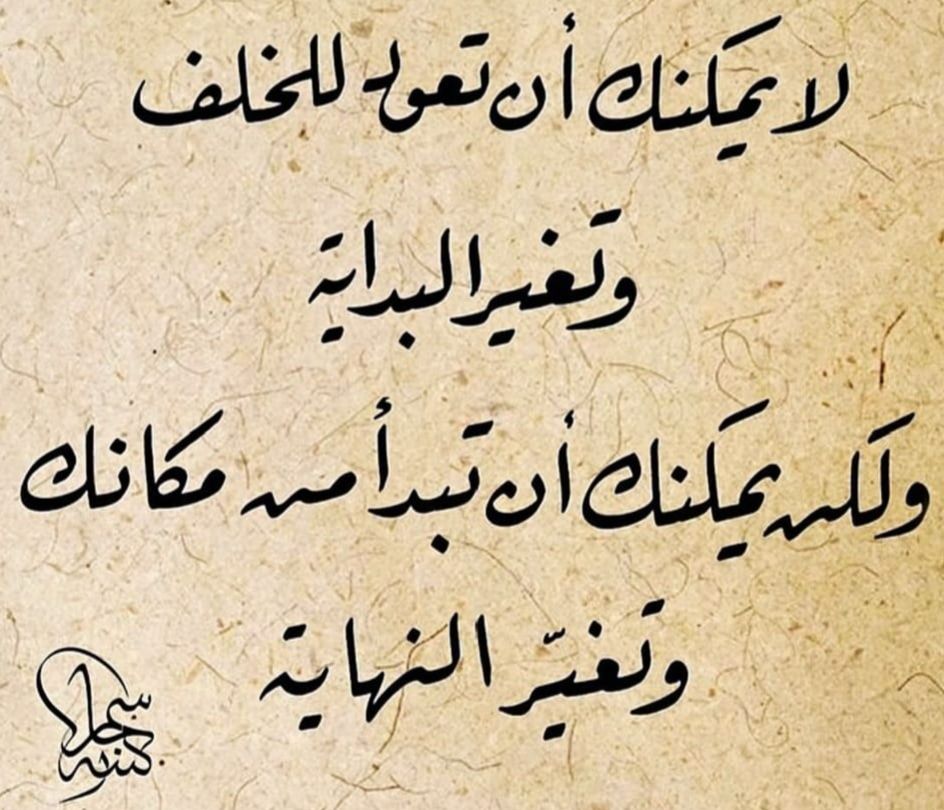 لا يمكنك أن تعود للخلف
وتغير البداية
ولكن يمكنك أن تبدأ من مكانك
وتغيّر النهاية